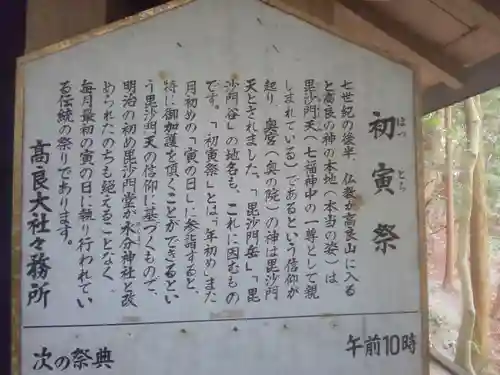 初寅祭
はつ
とら
七世紀の後半、仏教が高良山に入る
と高良の神の本地（本当の姿）は、
毘沙門天（七福神中の一尊として親
しまれている）であるという信仰が
起り、奥宮（奥の院）の神は毘沙門
天とされました。「毘沙門岳」「毘
沙門谷」の地名も、これに因むもの
です。「初寅祭」とは、年初め、また
月初めの「寅の日」に参詣すると、
特に御加護を頂くことができるとい
う毘沙門天の信仰に基づくもので、
明治の初め毘沙門堂が水分神社と改
められたのちも絶えることなく、
毎月最初の寅の日に執り行われてい
る伝統の祭りであります。
高良大社々務所
午前10時
次の祭典